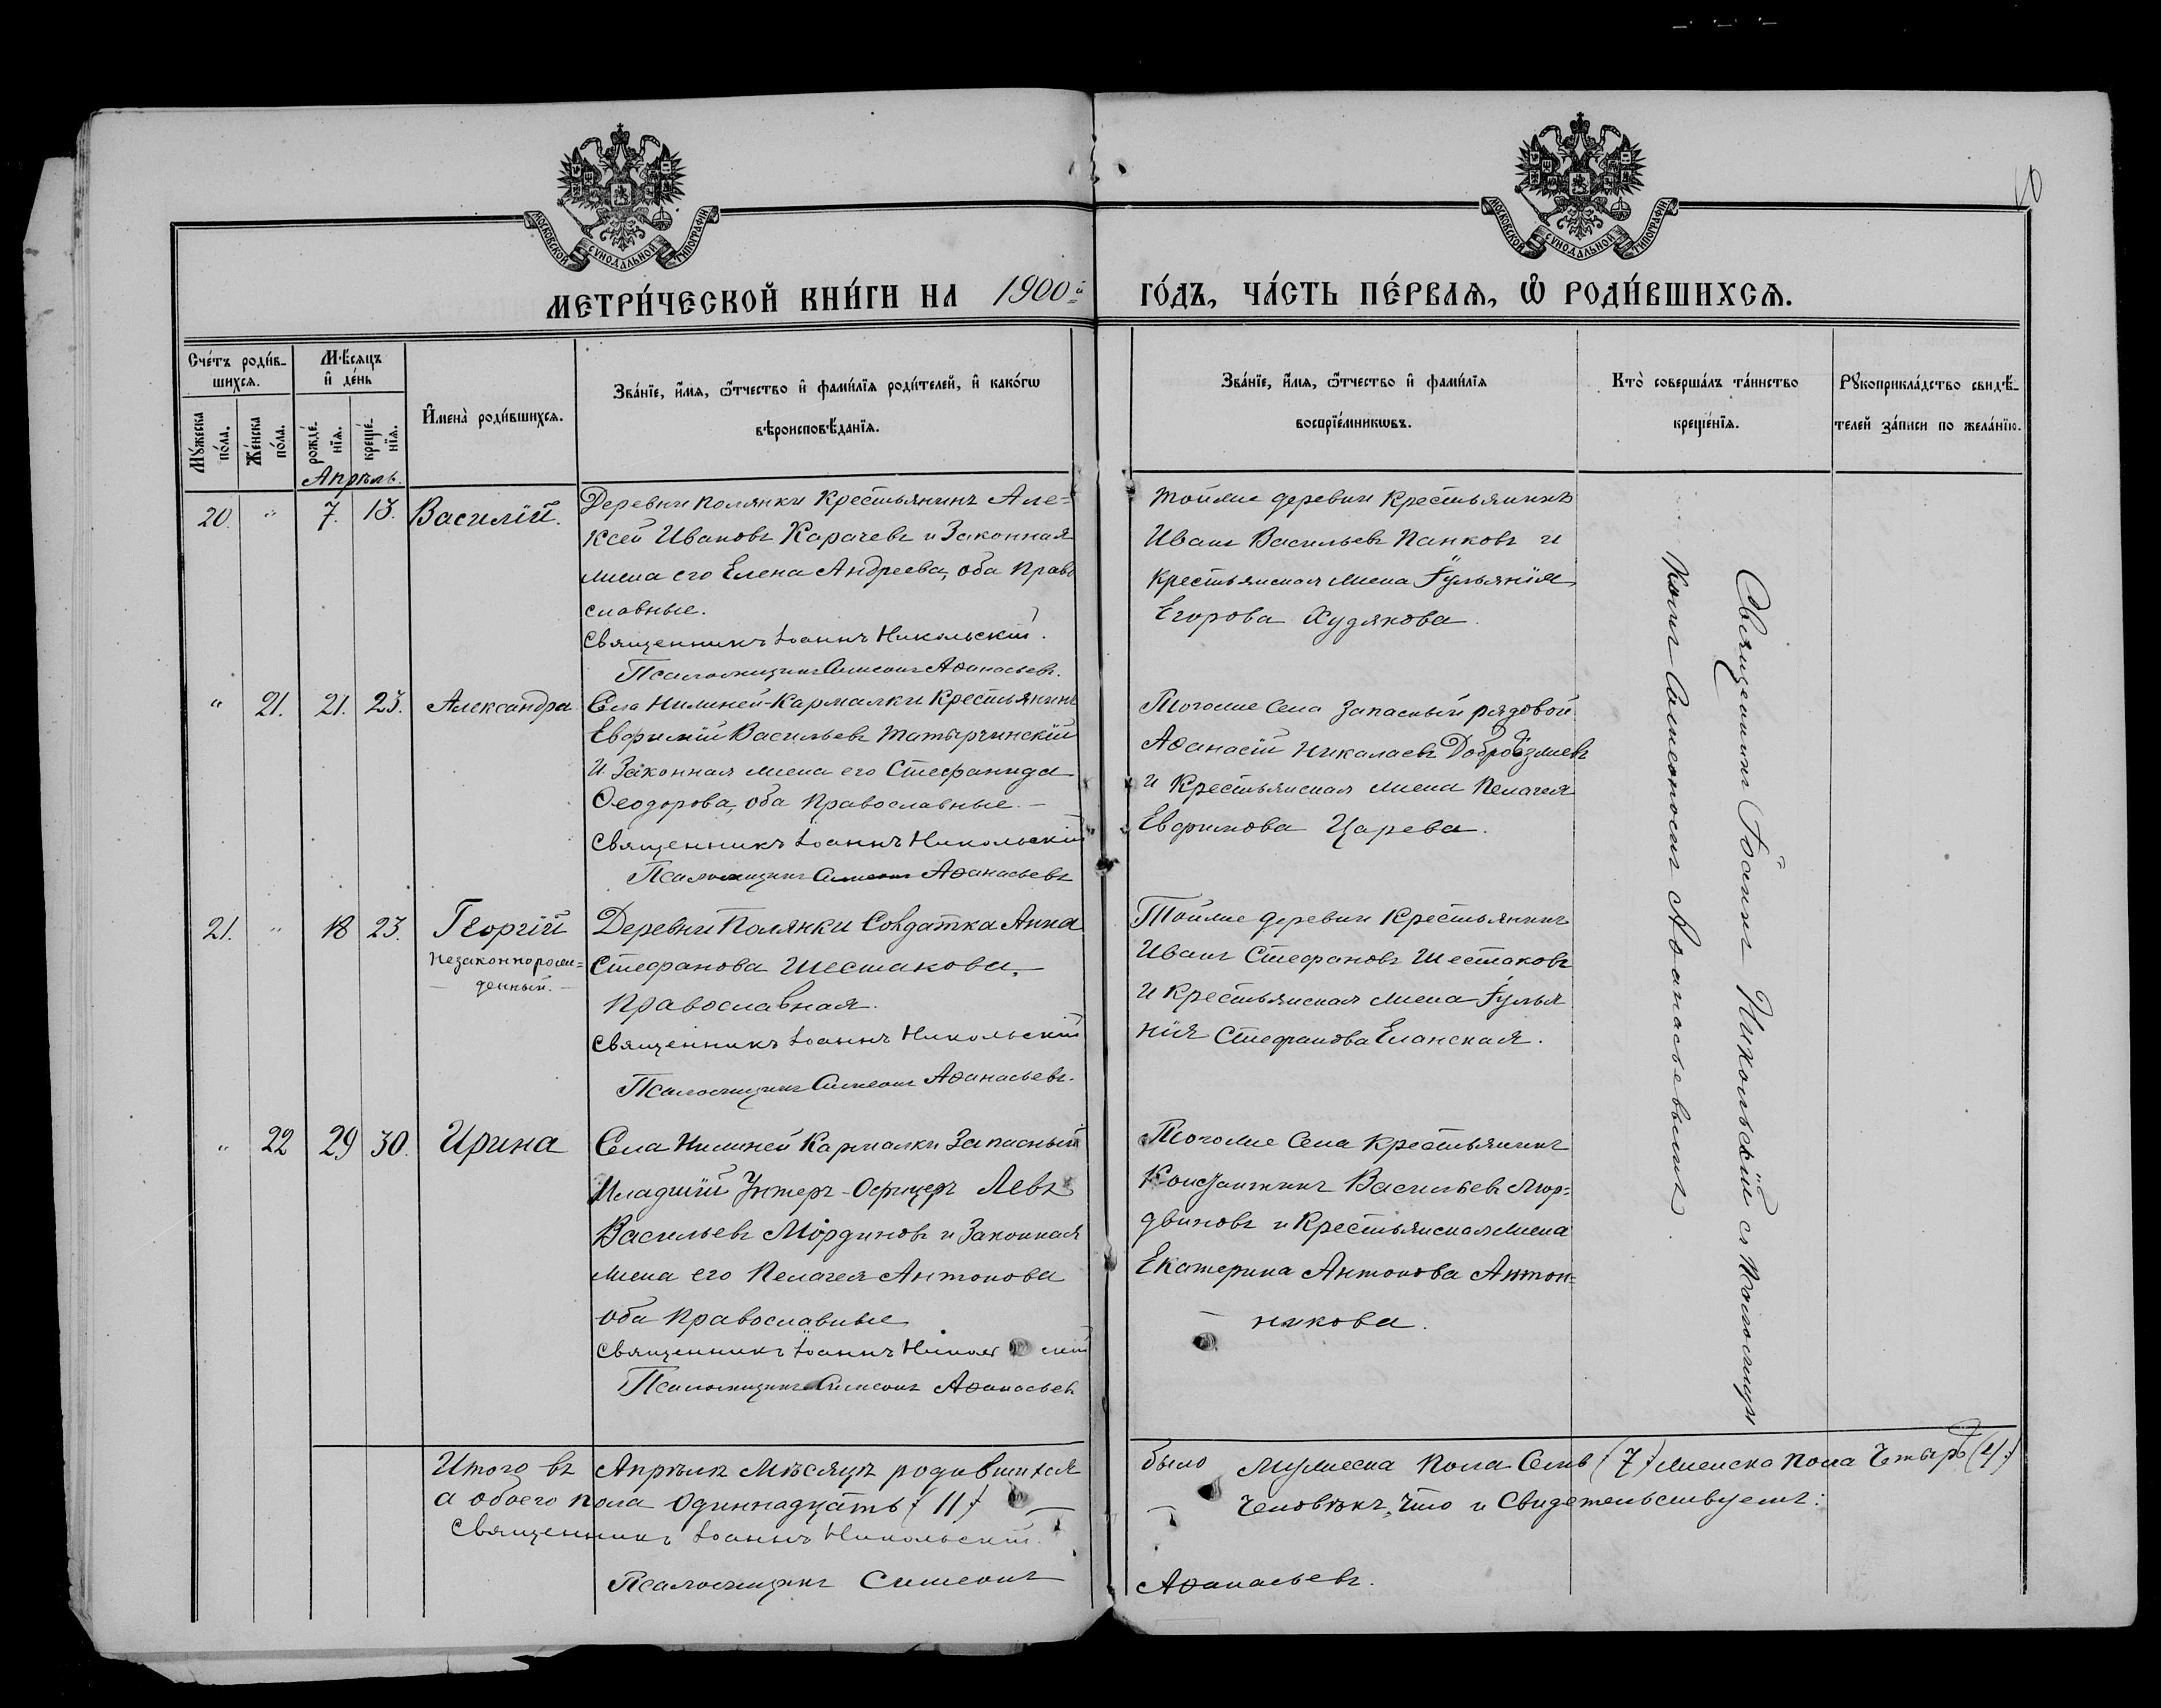 МОСКОВСКОЙ СУНОДАЛЬНОЙ ТИПОГРАФІИ
МОСКОВСКОЙ СУНОДАЛЬНОЙ ТИПОГРАФІИ
МЕТРИ́ЧЕСКОЙ КНИ́ГИ НА 1900й ГО́ДЪ, ЧА́СТЬ ПЕ́РВАѦ, Ѡ҆ РОДИ́ВШИХСѦ.
Сче́тъ роди́в-
шихсѧ.
Мꙋ́жеска по́ла.
Же́нска по́ла.
Мѣ́сѧцъ
и҆ де́нь
рожде́-
нїѧ.
креще́-
нїѧ.
И҆мена̀ роди́вшихсѧ.
Зва́нїе, и҆́мѧ, ѻ҆́тчество и҆ фами́лїѧ роди́телей, и҆ како́гѡ
вѣроисповѣ́данїѧ.
Зва́нїе, и҆́мѧ, ѻ҆́тчество и҆ фами́лїѧ
воспрїе́мникѡвъ.
Кто̀ соверша́лъ та́инство
креще́нїѧ.
Рꙋкоприкла́дство свидѣ́-
телей за́писи по жела́нїю.
Апрѣль.
20. " 7. 13. Василій.
Деревни Полянки Крестьянинъ Але-
ксей Ивановъ Карачевъ и Законная
жена его Елена Андреева, оба Право
славные.
Священникъ Іоаннъ Никольскій.
Псаломщикъ Симеонъ Аѳанасьевъ.
тойже деревни Крестьянинъ
Иванъ Васильевъ Панковъ и
крестьянская жена Іульянія
Егорова Худякова.
" 21. 21. 23. Александра
Села Нижней-Кармалки Крестьянинъ
Евфимій Васильевъ Татырчинскій
и Законная жена его Стефанида
Ѳеодорова, оба Православные.
Священникъ Іоаннъ Никольскій
Псаломщикъ Симеонъ Аѳанасьевъ
Тогоже Села Запасный рядовой
Аѳанасій Николаевъ
и Крестьянская жена Пелагея
Евфимова Царева.
21. " 18 23. Георгій
незаконнорож=
денный.
Деревни Полянки Солдатка Анна
Стефанова Шестакова,
Православная.
Священникъ Іоаннъ Никольскій
Псаломщикъ Симеонъ Аѳанасьевъ.
Тойже деревни Крестьянинъ
Иванъ Стефановъ Шестаковъ
и Крестьянская жена Іулья
нія Стефанова Еланская.
" 22 29 30. Ирина
Села Нижней Кармалки Запасный
Младшій Унтеръ-Офицеръ Левъ
Васильевъ Мординовъ и Законная
жена его Пелагея Антонова
оба Православные
Священникъ Іоаннъ Никольскій
Псаломщикъ Симеонъ Аѳанасьевъ
Тогоже Села Крестьянинъ
Константинъ Васильевъ Мор=
двиновъ и Крестьянская жена
Екатерина Антонова Антон=
никова.
Священникъ Іоаннъ Никольскій съ Псаломщи
комъ Симеономъ Аѳанасьевымъ.
Итого въ Апрѣлѣ Мѣсяцѣ родившихся было мужеска пола Семь (7) женска пола Четыре (4)
а обоего пола одиннадцать (11) Человѣкъ, что и Свидетельствуемъ:
Священникъ Іоаннъ Никольскій.
Псаломщикъ Симеонъ Аѳанасьевъ.